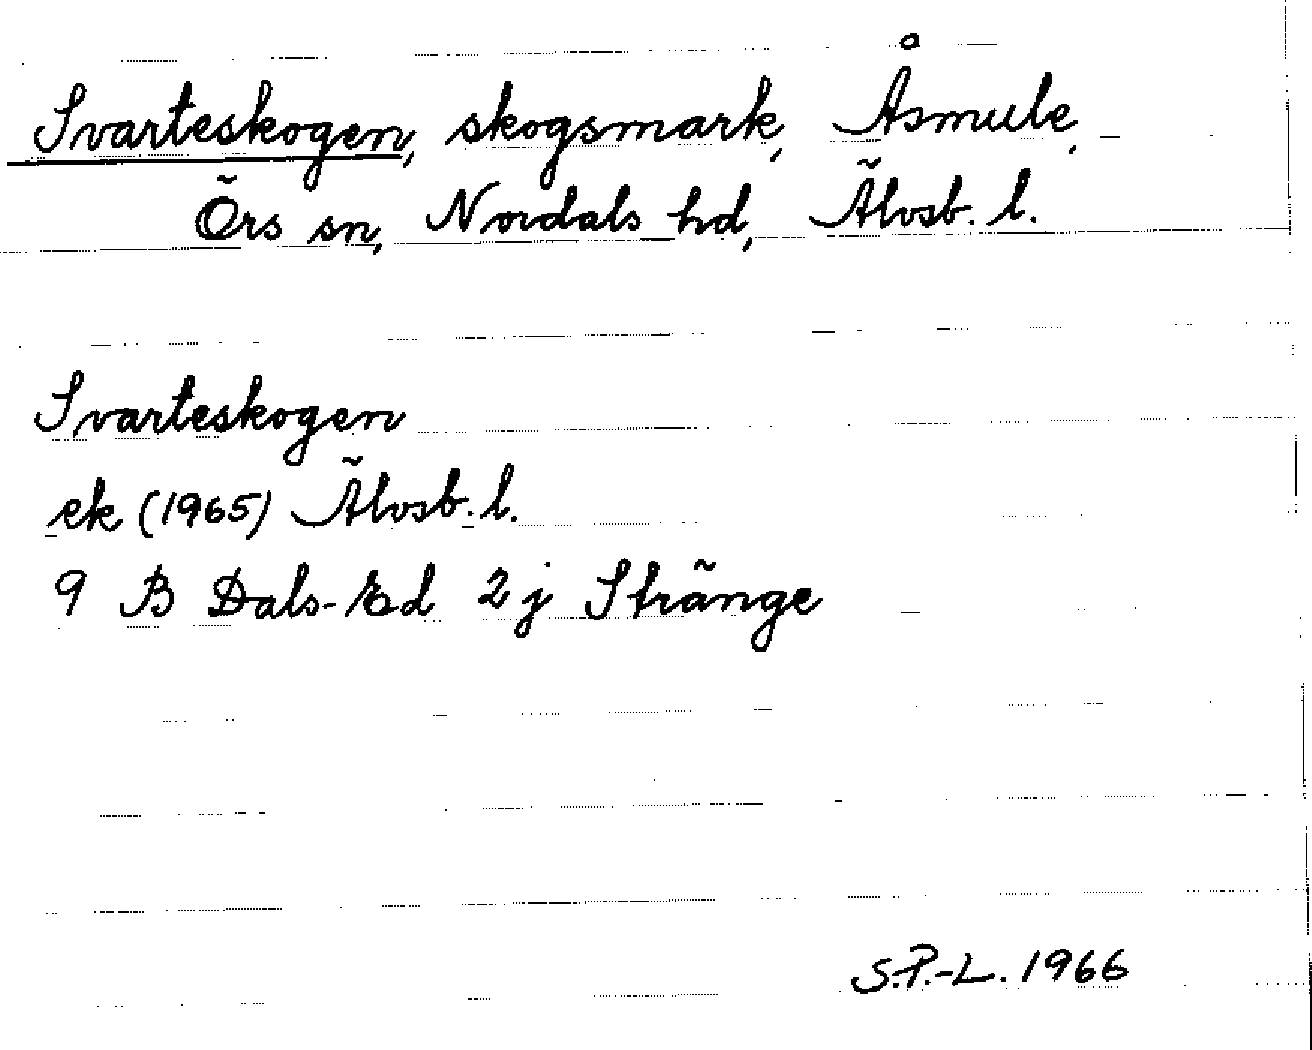 Svarteskogen, skogsmark, Åsmule,
Örs sn, Nordals hd, Älvsb. l.
Svarteskogen
ek (1965) Älvsb. l.
9 B Dals-Ed 2 j Stränge
S.P.-L. 1966